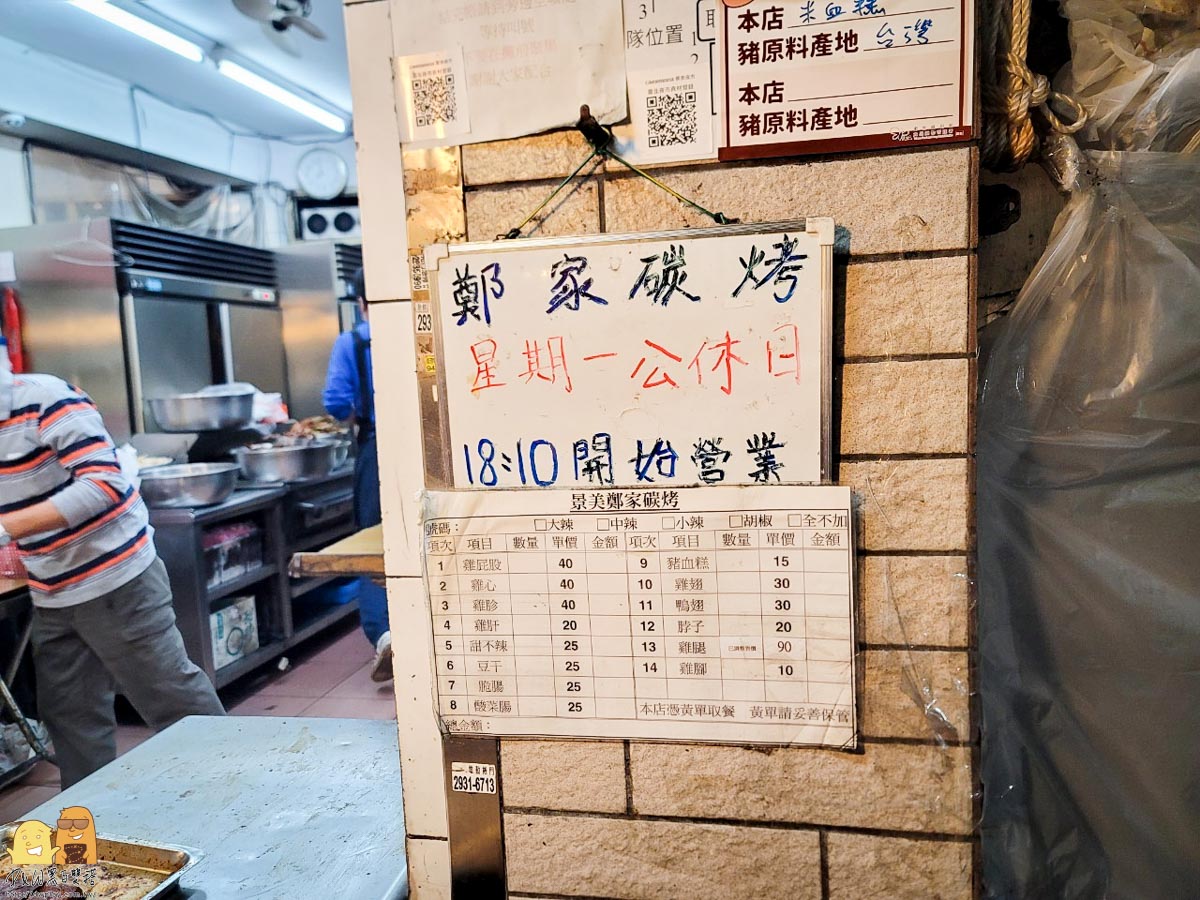 等待叫號
3
隊位置
本店 米血糕
豬原料產地 台灣
本店
豬原料產地
鄭家碳烤
星期一公休日
18:10開始營業
293
景美鄭家碳烤
號碼： □大辣 □中辣 □小辣 □胡椒 □全不加
項次 項目 數量 單價 金額 項次 項目 數量 單價 金額
1 雞屁股 40 9 豬血糕 15
2 雞心 40 10 雞翅 30
3 雞胗 40 11 鴨翅 30
4 雞肝 20 12 脖子 20
5 甜不辣 25 13 雞腿 90
6 豆干 25 14 雞腳 10
7 脆腸 25
8 酸菜腸 25 本店憑黃單取餐 黃單請妥善保管
總金額：
2931-6713